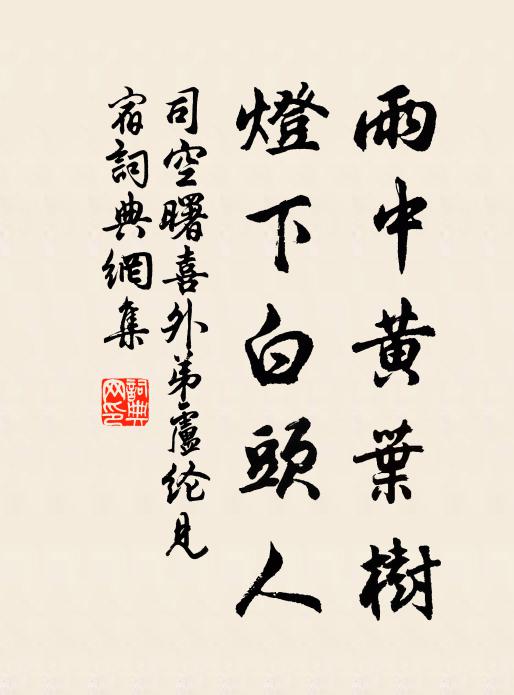 雨中黃葉樹
燈下白頭人
司空曙喜外弟盧纶見
宿詞典網集
詞典
网印